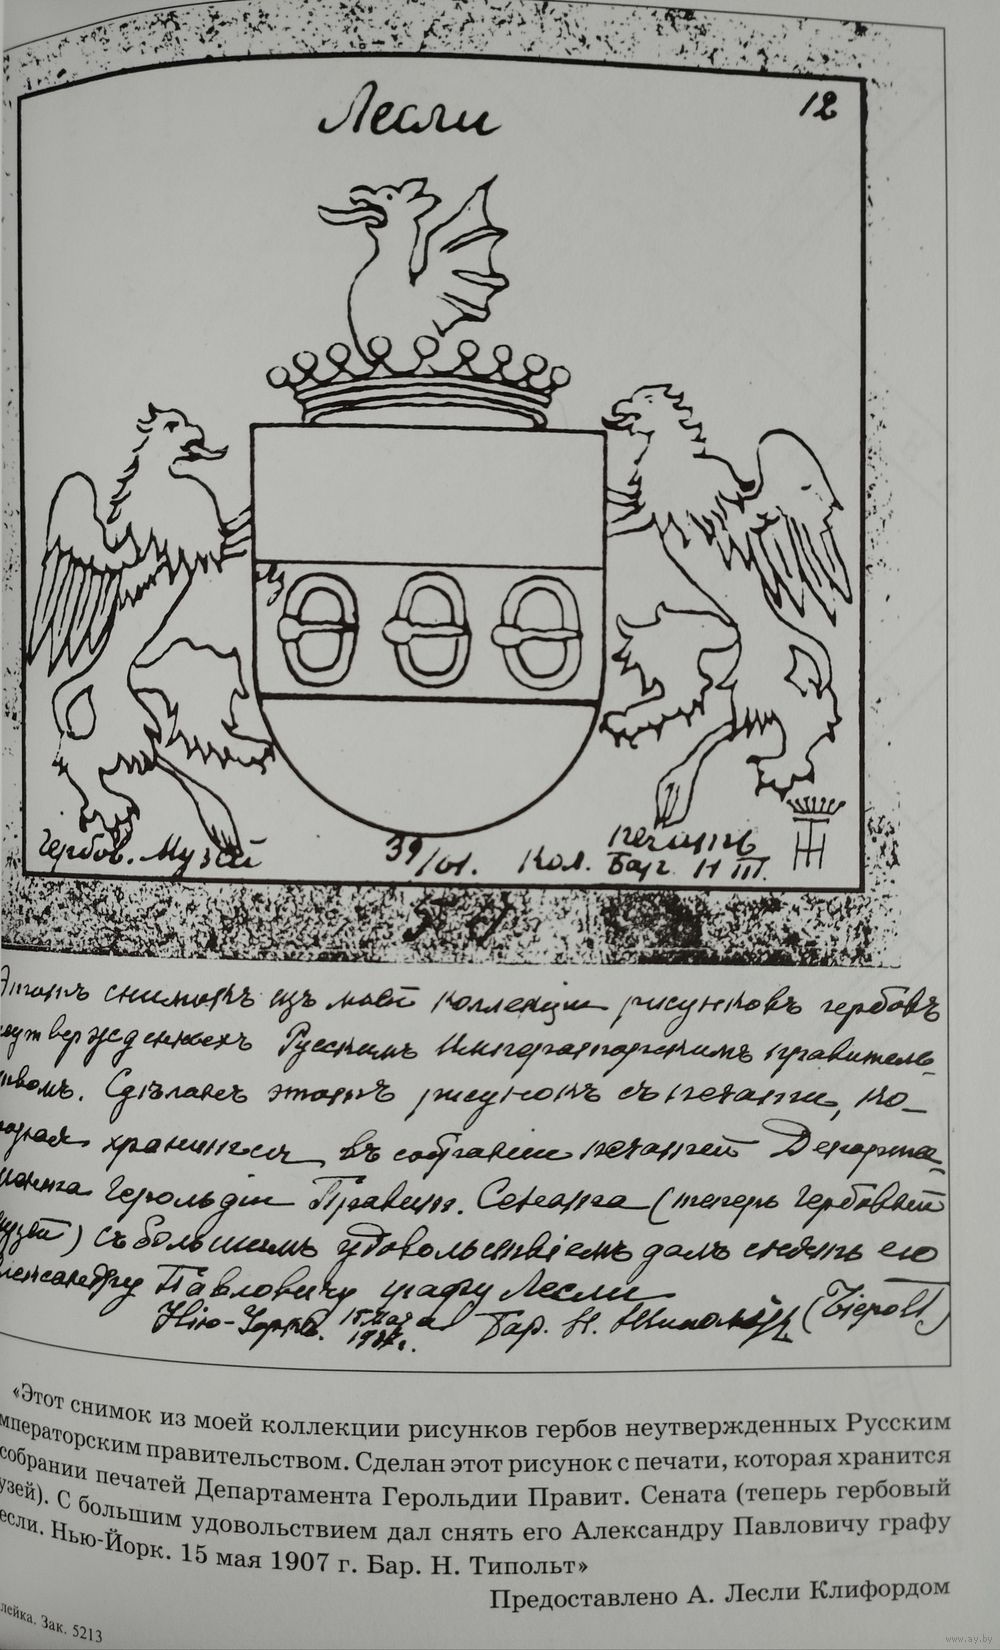 Лесли
12
Аз
Гербов. Музей 39/01. Кол. печать Бар. Н Т.
Этотъ снимокъ изъ моей коллекціи рисунковъ гербовъ
неутвержденныхъ Русскимъ Императорскимъ правитель-
ствомъ. Сдѣланъ этотъ рисунокъ съ печати, ко-
торая хранится въ собраніи печатей Департа-
мента Герольдіи Правит. Сената (теперь Гербовый
музей) съ большимъ удовольствіемъ далъ снять его
Александру Павловичу графу Лесли
Нію-Іоркъ. 15 мая
Бар. Н. Типольтъ
«Этот снимок из моей коллекции рисунков гербов неутвержденных Русским
мператорским правительством. Сделан этот рисунок с печати, которая хранится
собрании печатей Департамента Герольдии Правит. Сената (теперь гербовый
узей). С большим удовольствием дал снять его Александру Павловичу графу
если. Нью-Йорк. 15 мая 1907 г. Бар. Н. Типольт»
Предоставлено А. Лесли Клифордом
лейка. Зак. 5213
www.ay.by